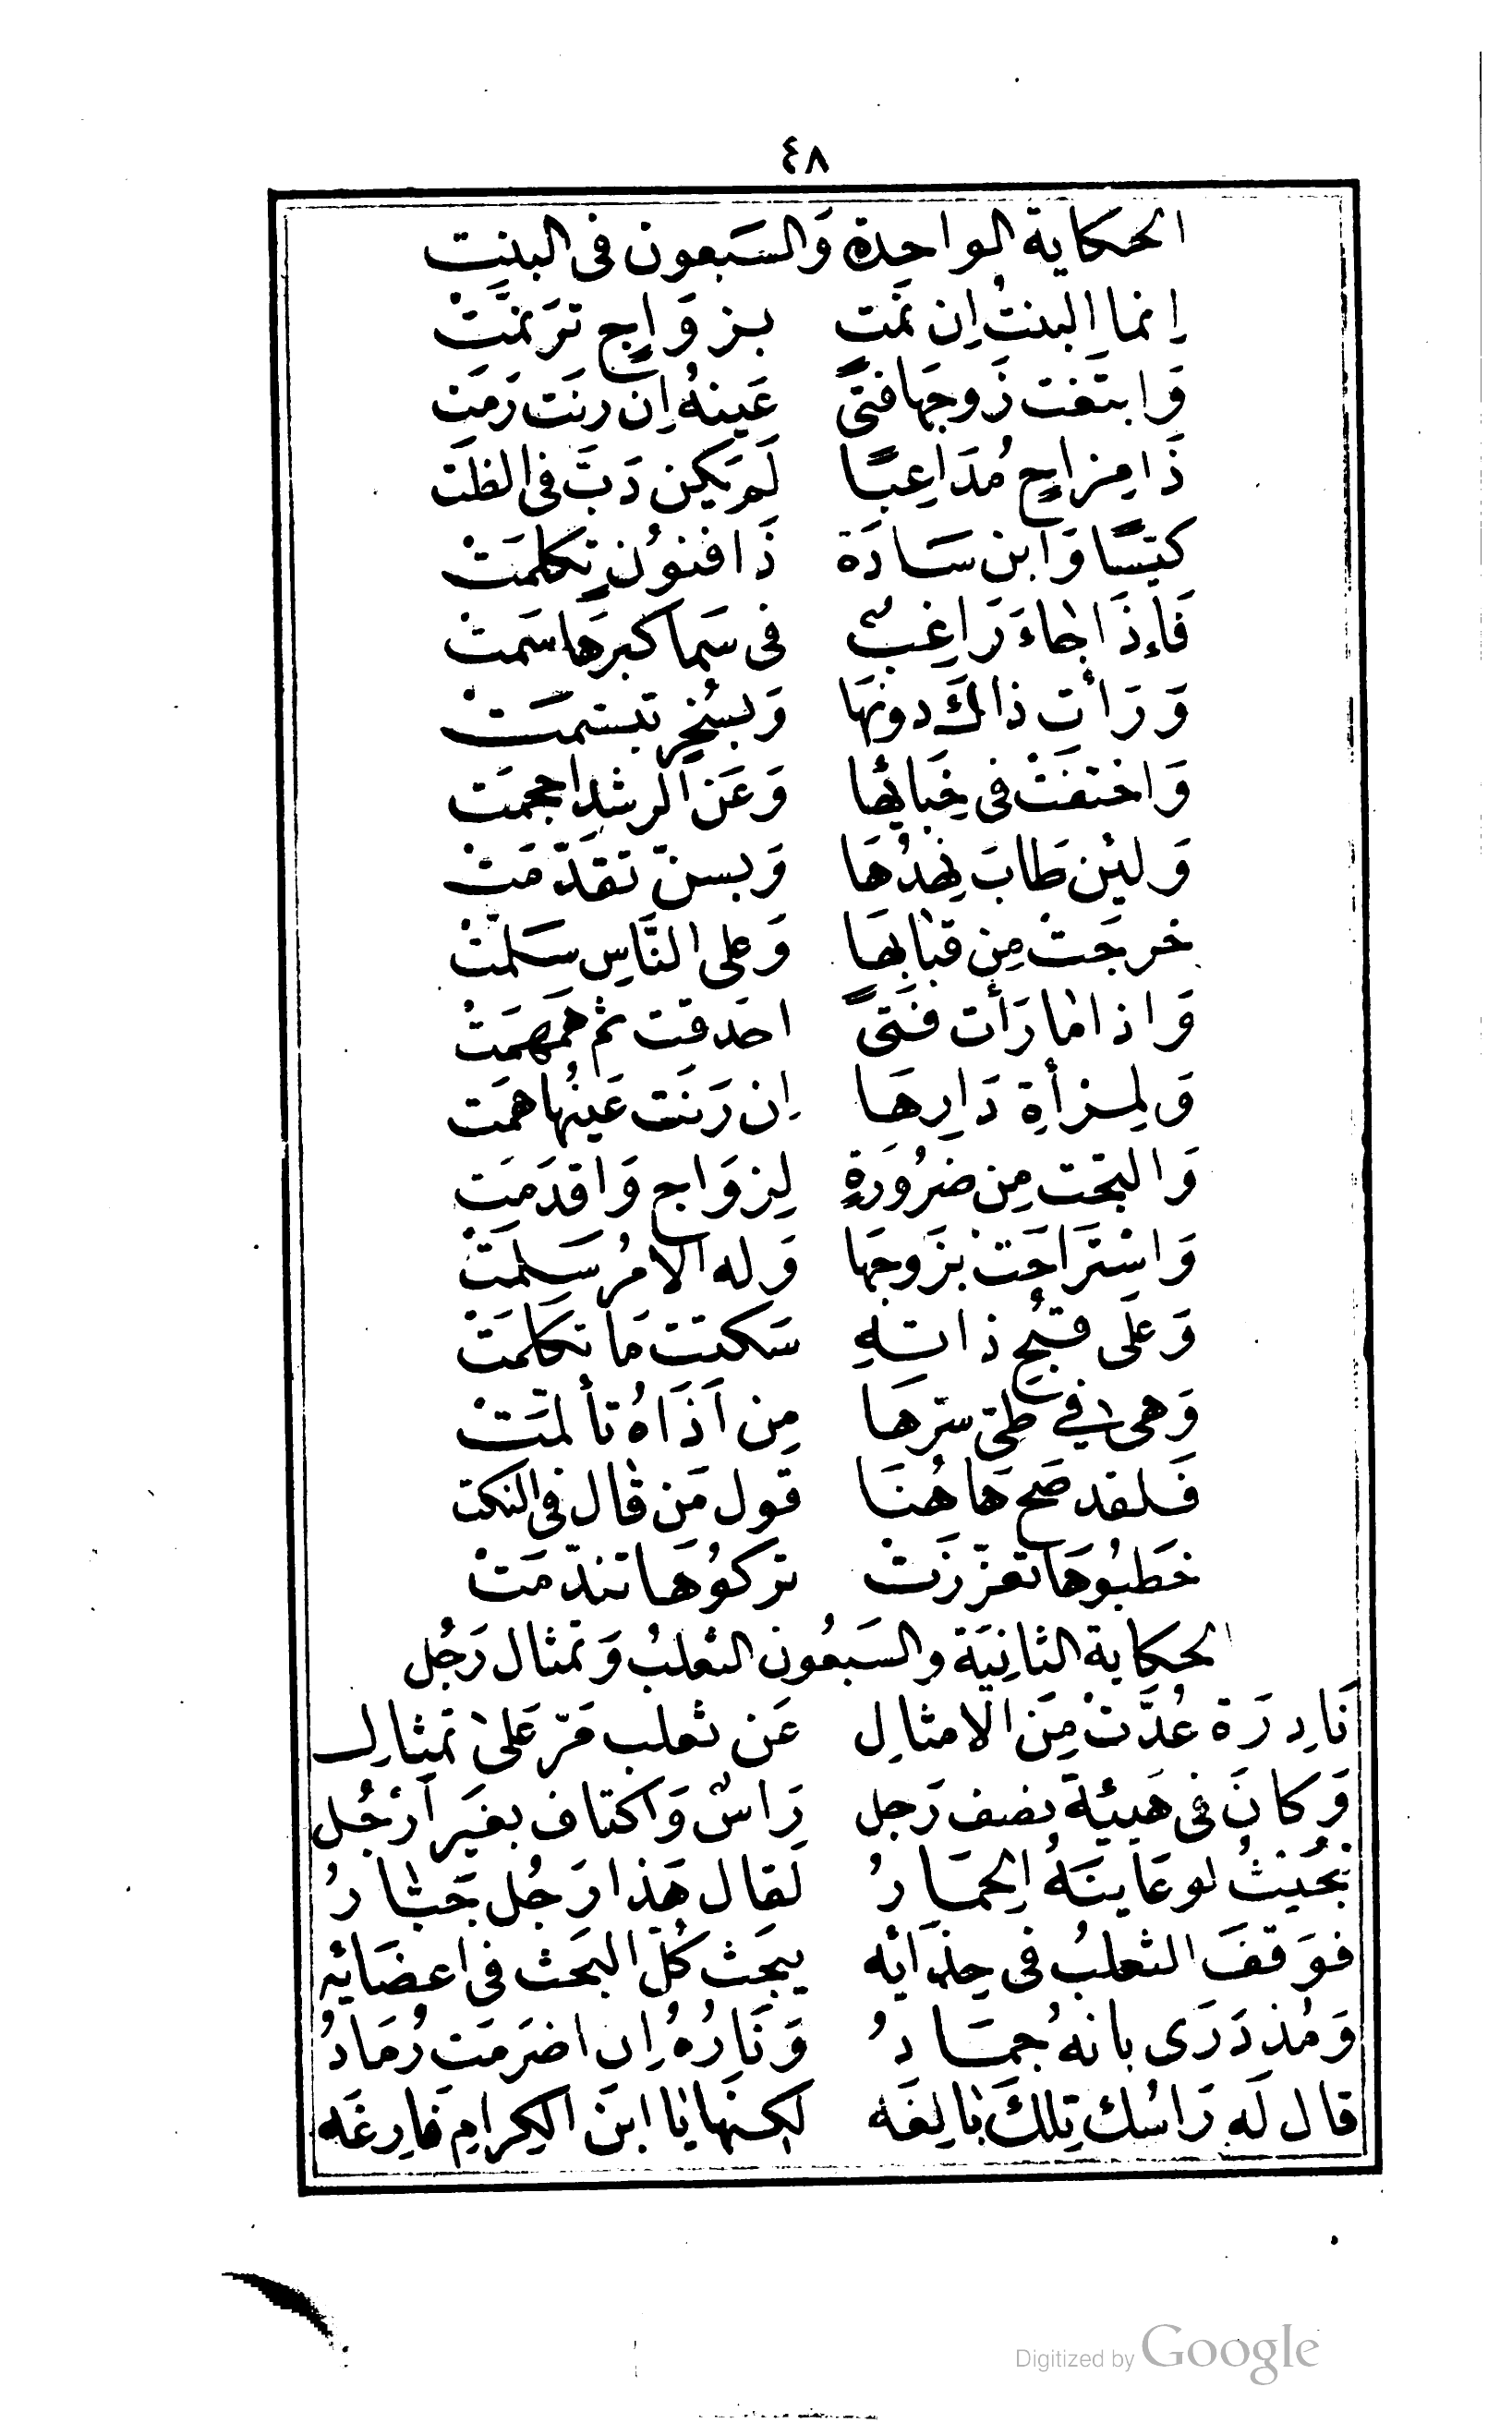 ٤٨
الحكاية الواحدة وَالسَبعون فى البنت
اِنما البنتُ اِن نَمَت بزوَاجٍ تَرَنمَّتْ
وَابتَغت زَوجَها فتىً عَينهُ اِن رنَت رَمَتْ
ذَا مِزاحٍ مُدَاعِبًا لَم يَكن دَبَّ فى الظلَمَتْ
كَيّسًا وَابن سَادَة ذَا فنوُنٍ تكلمَتْ
فَاِذَا جٰاءَ رَاغِبٌ فى سَما كبرِهَا سَمَتْ
وَرَأت ذاكَ دونهَا وَبسُخرٍ تبسّمَتْ
وَاختفَتْ فى خِبَائهٰا وَعَن الرشدِ احجمَت
وَلئِن طَابَ نهدُهَا وَبسنّ تقدّمَتْ
خرجَتْ مِن قبٰابهَا وَعلى النَّاسِ سَلمّتْ
وَاذا مٰا رَأت فَتىً احَدقت ثم هَمهَمَتْ
وَلِمرأةِ دَارِهَا اِن رَنَت عَينُها همَت
وَالتجت مِن ضرُورَةٍ لِزوَاجٍ وَاقدَمَت
وَاسْترَاحَتْ بزَوجَها وَله الامُر سَلمَتْ
وَعَلَى قبُحِ ذاتهِ سَكتَت مَا تكَلمَتْ
وَهى فى طىّ سرّهَا مِن اَذَاهُ تألمَّتْ
فَلقد صَح هَا هُنَا قَول مَن قٰال فى النكت
خَطبُوهَا تعزّزَتْ ترَكوُهَا تندّمَتْ
الحكاية الثانِيَة والسَبعُون الثعلبُ وَتمثال رَجُل
نَادِرَة عُدَّتْ مِنَ الامثالِ عَن ثعلب مَرّ عَلىٰ تمِثالِ
وَكانَ فى هَيئة نصف رَجل رَاسٌ وَاكتاف بغيَر اَرْجُل
بحَيثُ لو عَاينَهُ الحِمَارُ لَقال هَذا رَجُل جَبّارُ
فوَقفَ الثعلبُ فى حِذَائه يبحَث كُلّ البَحث فى اعضَائهِ
وَمُذ دَرَى بانهُ جمَادُ وَنَارُهُ اِن اضرَمَت رُمَادُ
قال لَه رَاسُك تِلكَ بٰالِغَه لكِنهٰا يٰا ابنَ الكِرامِ فَارِغَه
Digitized by Google